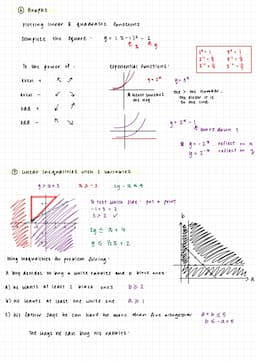 ⑥ Graphs
Plotting linear & quadratic functions
Complete the square: y = (x - 1)² - 2
To the power of:
exponential functions:
even +
even -
odd +
odd -
y = 2ˣ
y = 3ˣ
the > the number,
the closer it is
to the line
y = 2ˣ - 1
moves down 1
y = -2ˣ reflect on x
y = 2⁻ˣ reflect on y
⑦ Linear Inequalities with 2 Variables
y > x + 2
x ≥ -3
2y - x ≤ 4
To test which side: put a point
3 > 2 ✓
2y ≤ x + 4
y ≤ ½x + 2
Using inequalities for problem solving:
A boy decides to buy a white rabbits and b black ones
a) He wants at least 2 black ones b ≥ 2
b) He wants at least one white one a ≥ 1
c) His father says he can have no more than five altogether a + b ≤ 5
b ≤ -a + 5
The ways he can buy his rabbits:
b
a